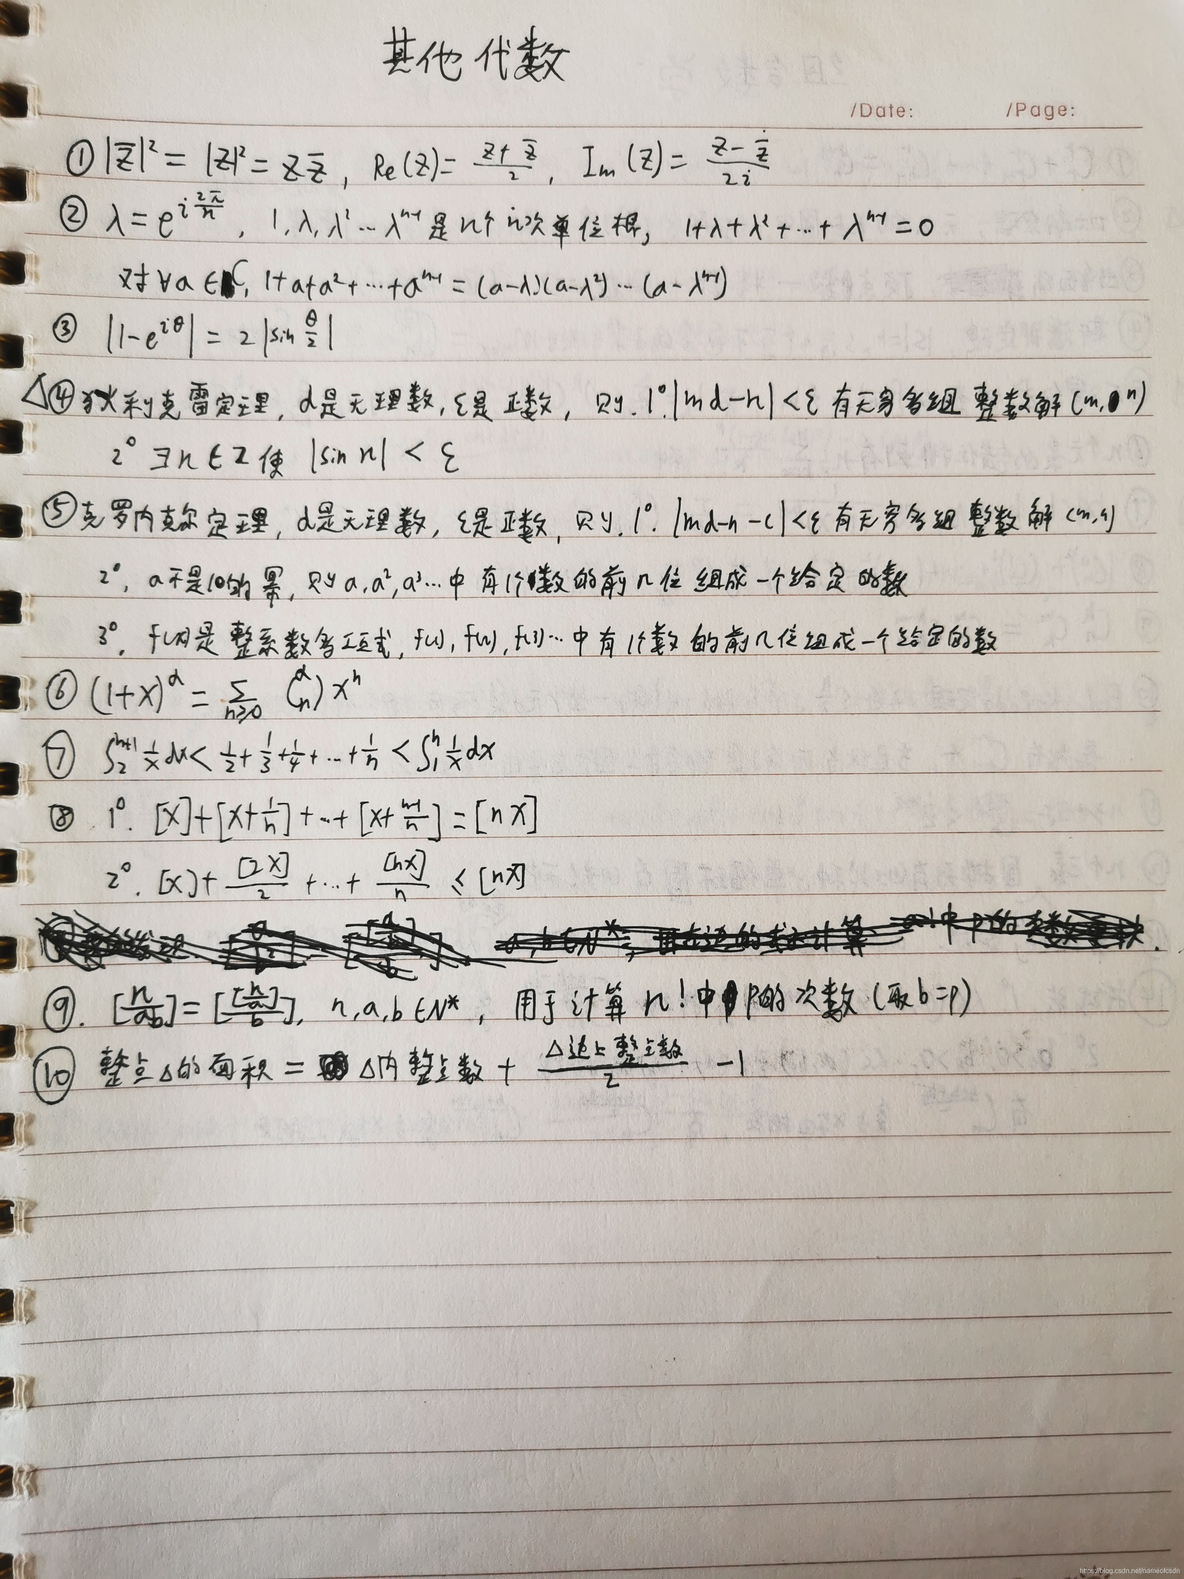 其他代数
/Date: /Page:
① |z̅|² = |z|² = z z̅ , Re(z) = (z+z̅)/2 , Im(z) = (z-z̅)/2i
② λ = e^{i 2π/n} , 1, λ, λ² … λ^{n-1} 是 n个 n次单位根, 1+λ+λ²+…+λ^{n-1} = 0
对 ∀a∈C, 1+a+a²+…+a^{n-1} = (a-λ)(a-λ²)…(a-λ^{n-1})
③ |1-e^{iθ}| = 2|sin θ/2|
△④ 狄利克雷定理, α是无理数, ε是正数, 则. 1°. |mα-n|<ε 有无穷多组 整数解 (m, n)
2° ∃n∈Z 使 |sin n| < ε
⑤ 克罗内克尔定理, α是无理数, ε是正数, 则. 1°. |mα-n-c|<ε 有无穷多组 整数解 (m,n)
2°. a不是10的幂, 则 a, a², a³… 中有1个数的前几位组成一个给定的数
3°. f(x)是整系数多项式, f(1), f(2), f(3)… 中有1个数的前几位组成一个给定的数
⑥ (1+x)^α = Σ_{n≥0} (α n) x^n
⑦ ∫_2^{n+1} 1/x dx < 1/2+1/3+1/4+…+1/n < ∫_1^n 1/x dx
⑧ 1°. [x]+[x+1/n]+…+[x+(n-1)/n] = [nx]
2°. [x]+[2x]/2+…+[nx]/n ≤ [nx]
⑨. [n/ab] = [[n/a]/b], n,a,b∈N* , 用于计算 n! 中 p的次数 (取b=p)
⑩ 整点△的面积 = △内整点数 + △边上整点数/2 -1
https://blog.csdn.net/nameofcsdn